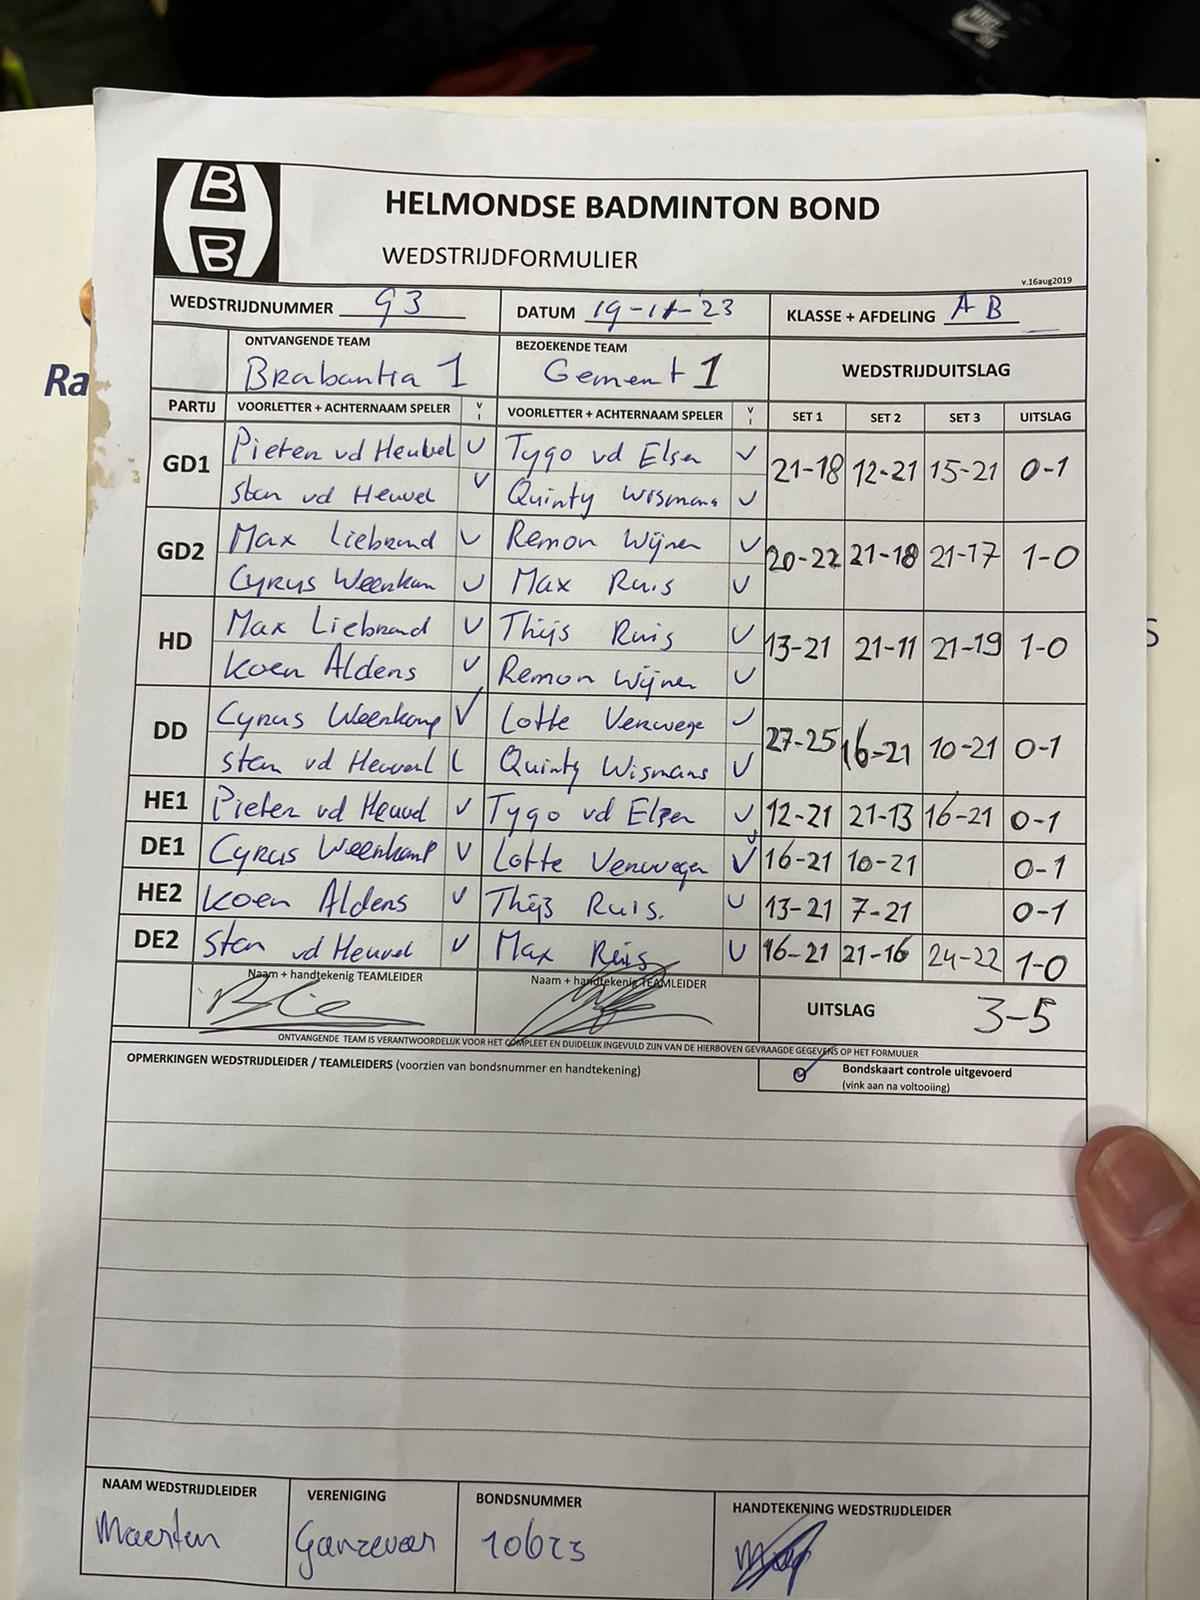 B
B
HELMONDSE BADMINTON BOND
WEDSTRIJDFORMULIER
v.16aug2019
WEDSTRIJDNUMMER 93 DATUM 19-11-'23 KLASSE + AFDELING AB
ONTVANGENDE TEAM BEZOEKENDE TEAM
Brabantia 1 Gement 1 WEDSTRIJDUITSLAG
PARTIJ VOORLETTER + ACHTERNAAM SPELER V I VOORLETTER + ACHTERNAAM SPELER V I SET 1 SET 2 SET 3 UITSLAG
GD1 Pieter vd Heuvel V Tygo vd Elsen V 21-18 12-21 15-21 0-1
Stan vd Heuvel V Quinty Wismans V
GD2 Max Liebrand V Remon Wijnen V 20-22 21-18 21-17 1-0
Cyrus Weenkam V Max Ruis V
HD Max Liebrand V Thijs Ruis V 13-21 21-11 21-19 1-0
Koen Aldens V Remon Wijnen V
DD Cyrus Weenkamp V Lotte Verwege V 27-25 16-21 10-21 0-1
Stan vd Heuvel Quinty Wismans V
HE1 Pieter vd Heuvel V Tygo vd Elsen V 12-21 21-13 16-21 0-1
DE1 Cyrus Weenkamp V Lotte Verwegen V 16-21 10-21 0-1
HE2 Koen Aldens V Thijs Ruis. V 13-21 7-21 0-1
DE2 Stan vd Heuvel V Max Ruis V 16-21 21-16 24-22 1-0
Naam + handtekenig TEAMLEIDER Naam + handtekenig TEAMLEIDER UITSLAG 3-5
ONTVANGENDE TEAM IS VERANTWOORDELIJK VOOR HET COMPLEET EN DUIDELIJK INGEVULD ZIJN VAN DE HIERBOVEN GEVRAAGDE GEGEVENS OP HET FORMULIER
OPMERKINGEN WEDSTRIJDLEIDER / TEAMLEIDERS (voorzien van bondsnummer en handtekening)
Bondskaart controle uitgevoerd
(vink aan na voltooiing)
NAAM WEDSTRIJDLEIDER VERENIGING BONDSNUMMER HANDTEKENING WEDSTRIJDLEIDER
Maerten Ganzeveer
Ra
s